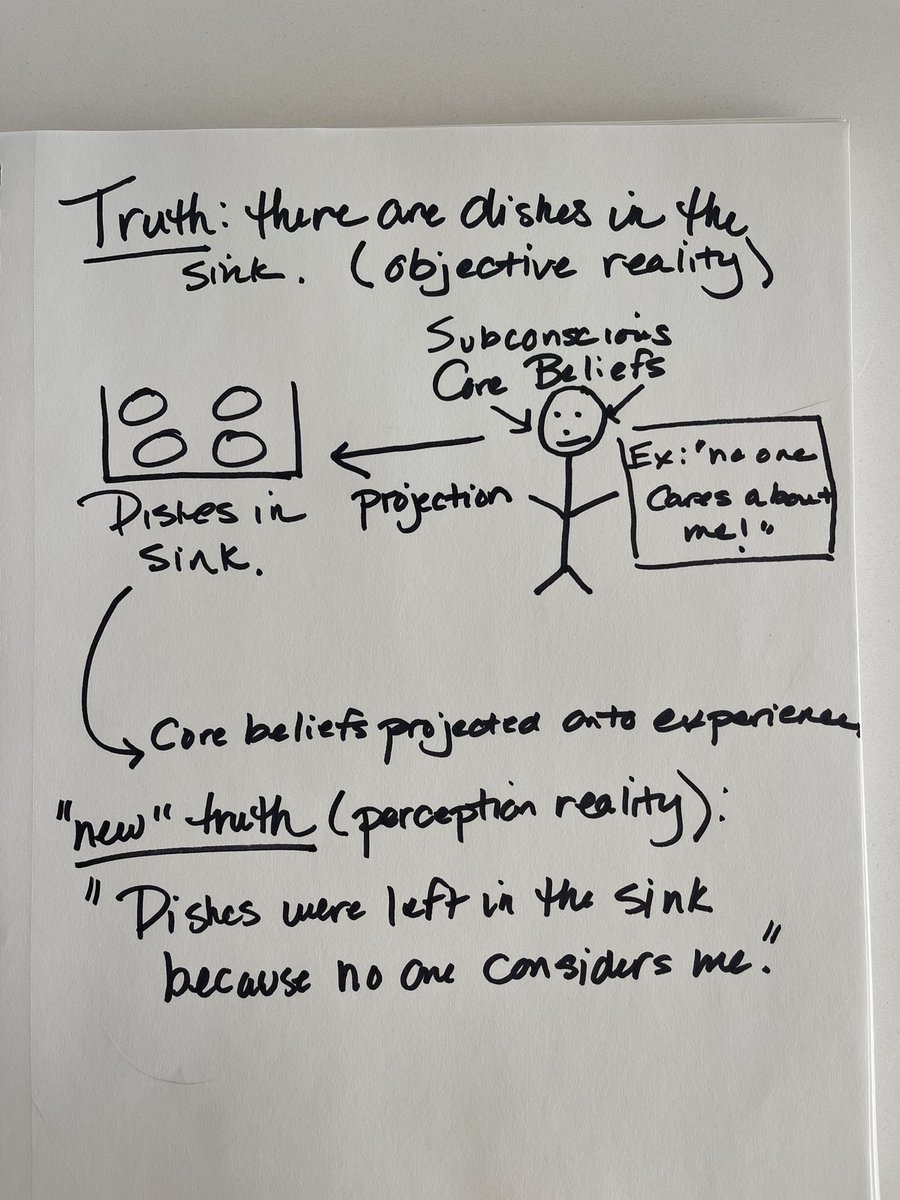 Truth: there are dishes in the
sink. (objective reality)
Subconscious
Core Beliefs
Ex: "no one
cares about
me!"
projection
Dishes in
sink.
Core beliefs projected onto experience
"new" truth (perception reality):
"Dishes were left in the sink
because no one considers me."